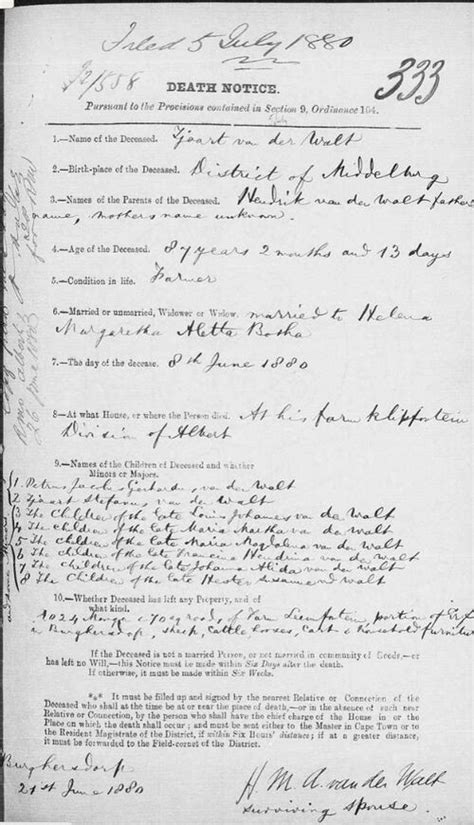 Filed 5 July 1880
333
DEATH NOTICE.
Pursuant to the Provisions contained in Section 9, Ordinance 104.
1.—Name of the Deceased. Tjaart van der Walt
2.—Birth-place of the Deceased. District of Middelburg
3.—Names of the Parents of the Deceased. Hendrik van der Walt father
name, mothers name unknown.
4.—Age of the Deceased. 87 years 2 months and 13 days
5.—Condition in life. Farmer
6.—Married or unmarried, Widower or Widow. married to Helena
Margaretha Aletta Botha
7.—The day of the decease. 8th June 1880
8—At what House, or where the Person died. At his farm Klipfontein
Division of Albert
9.—Names of the Children of Deceased and whether
Minors or Majors.
1. Petrus Jacobus van der Walt
2 Tjaart Stefanus van der Walt
3 The Children of the late Louis Johannes van der Walt
4 The Children of the late Maria Martha van der Walt
5 The Children of the late Maria Magdalena van der Walt
6 The Children of the late Francina Hendrina van der Walt
7 The Children of the late Johanna Alida van der Walt
8 The Children of the late Hester Susanna vd Walt
10.—Whether Deceased has left any Property, and of
what kind.
1024 Morgen 170 sq roods of Farm portion of Erf
in Burghersdorp, sheep, cattle, horses, Cart & household furniture
If the Deceased is not a married Person, or not married in community of Goods,—or
has left no Will,—this Notice must be made within Six Days after the death.
If otherwise, it must be made within Six Weeks.
*** It must be filled up and signed by the nearest Relative or Connection of the
Deceased who shall at the time be at or near the place of death,—or in the absence of such near
Relative or Connection, by the person who shall have the chief charge of the House in or the
Place on which the death shall occur; and must be sent either to the Master in Cape Town or to
the Resident Magistrate of the District, if within Six Hours' distance; if at a greater distance,
it must be forwarded to the Field-cornet of the District.
Burghersdorp
21st June 1880
H. M. A. van der Walt
surviving spouse.